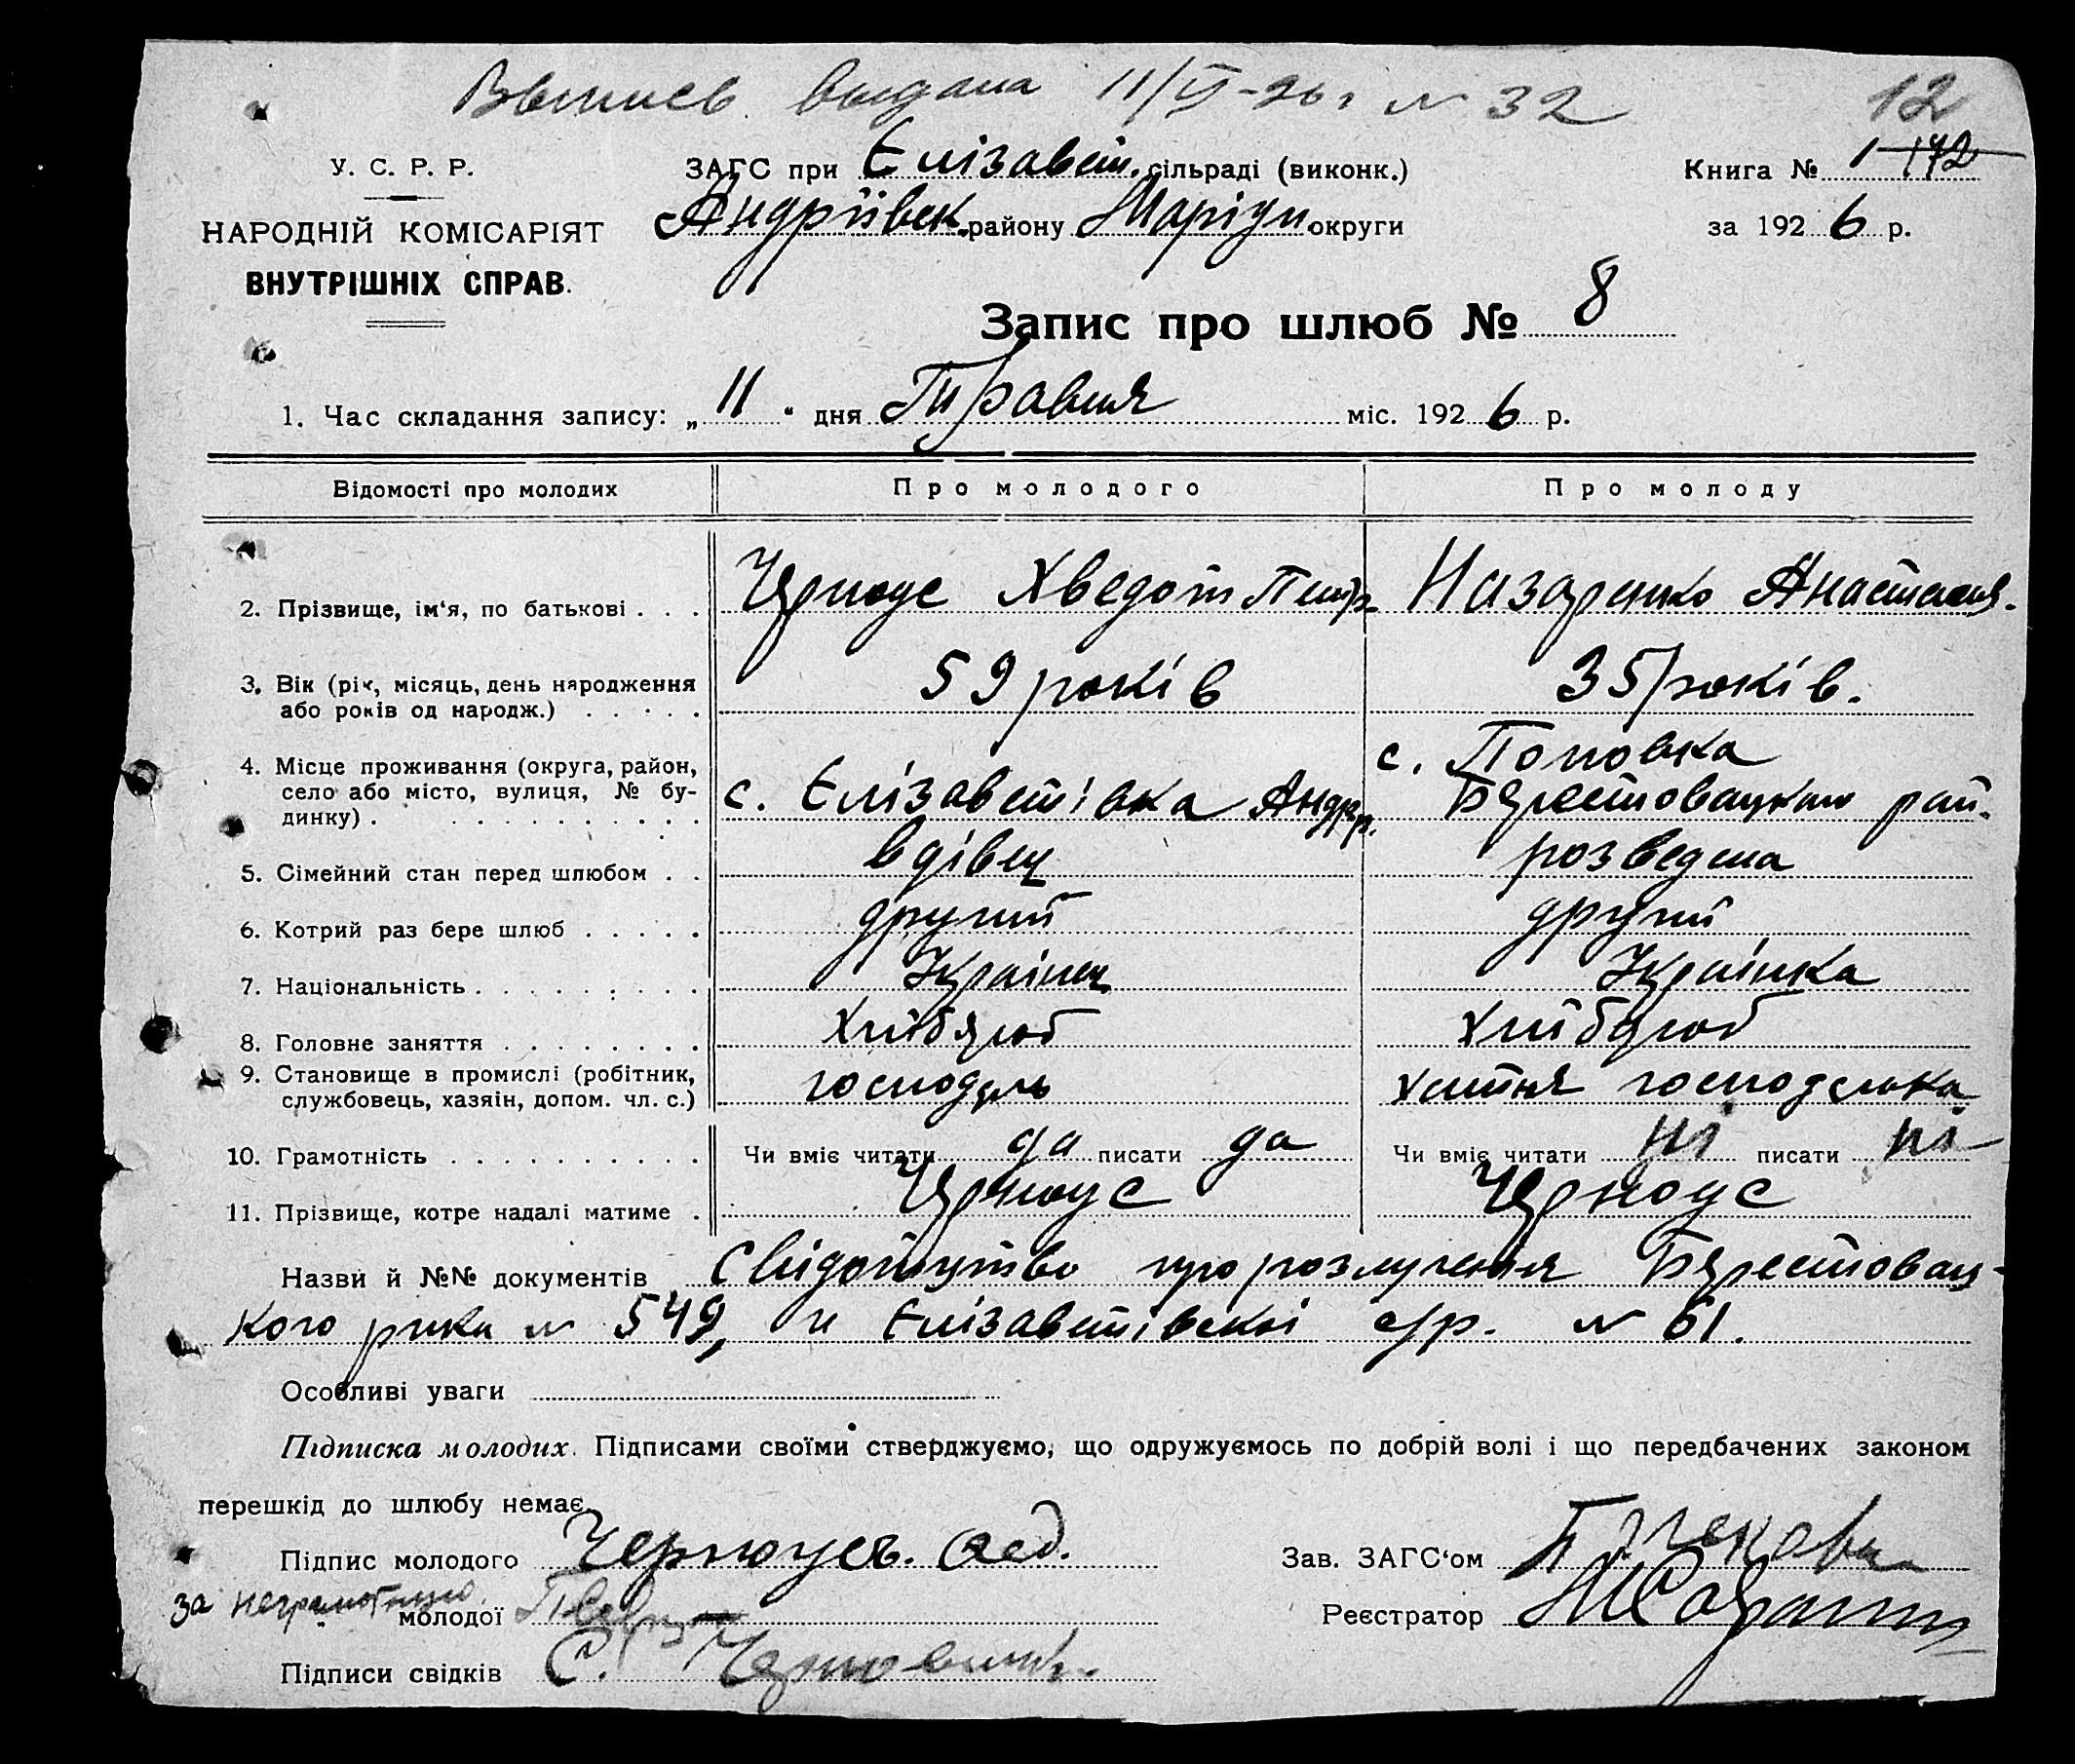 Выпись выдана 11/VI-26 г № 32 12
У. С. Р. Р.
ЗАГС при Єлізавет. сільраді (виконк.)
Книга № 1 172
НАРОДНІЙ КОМІСАРІЯТ
Андріївськ. району Маріуп. округи
за 1926 р.
ВНУТРІШНІХ СПРАВ.
Запис про шлюб № 8
1. Час складання запису: „11“ дня Травня міс. 1926 р.
Відомості про молодих Про молодого Про молоду
2. Прізвище, ім‘я, по батькові . . . Черноус Хведот Петр. Назаренко Анастасия.
3. Вік (рік, місяць, день народження
або років од народж.) . . . . . 59 років 35 років.
4. Місце проживання (округа, район,
село або місто, вулиця, № бу-
динку) . . . . . . . . . . . с. Єлізаветівка Андр.р. с. Поповка
Берестовацького рай.
5. Сімейний стан перед шлюбом . . вдівец розведена
6. Котрий раз бере шлюб . . . . . другий другий
7. Національність . . . . . . . . Українец Українка
8. Головне заняття . . . . . . . . Хлібороб Хлібороб
9. Становище в промислі (робітник,
службовець, хазяїн, допом. чл. с.) господарь хатня господарька
10. Грамотність . . . . . . . . . . Чи вміє читати да писати да Чи вміє читати ні писати ні
11. Прізвище, котре надалі матиме . Черноус Черноус
Назви й №№ документів Свідоцтво про розлучення Берестовац-
кого рика № 549, и Єлізаветівскої с/р. № 61.
Особливі уваги
Підписка молодих. Підписами своїми стверджуємо, що одружуємось по добрій волі і що передбачених законом
перешкід до шлюбу немає.
Підпис молодого Черноусъ. Фед.
Зав. ЗАГС‘ом
за неграмотную.
молодої
Реєстратор
Підписи свідків С.